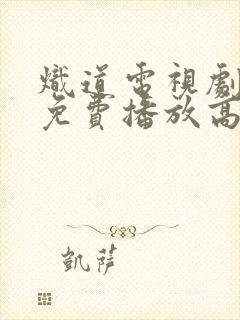 熾道電視劇
免費播放高
凱薩